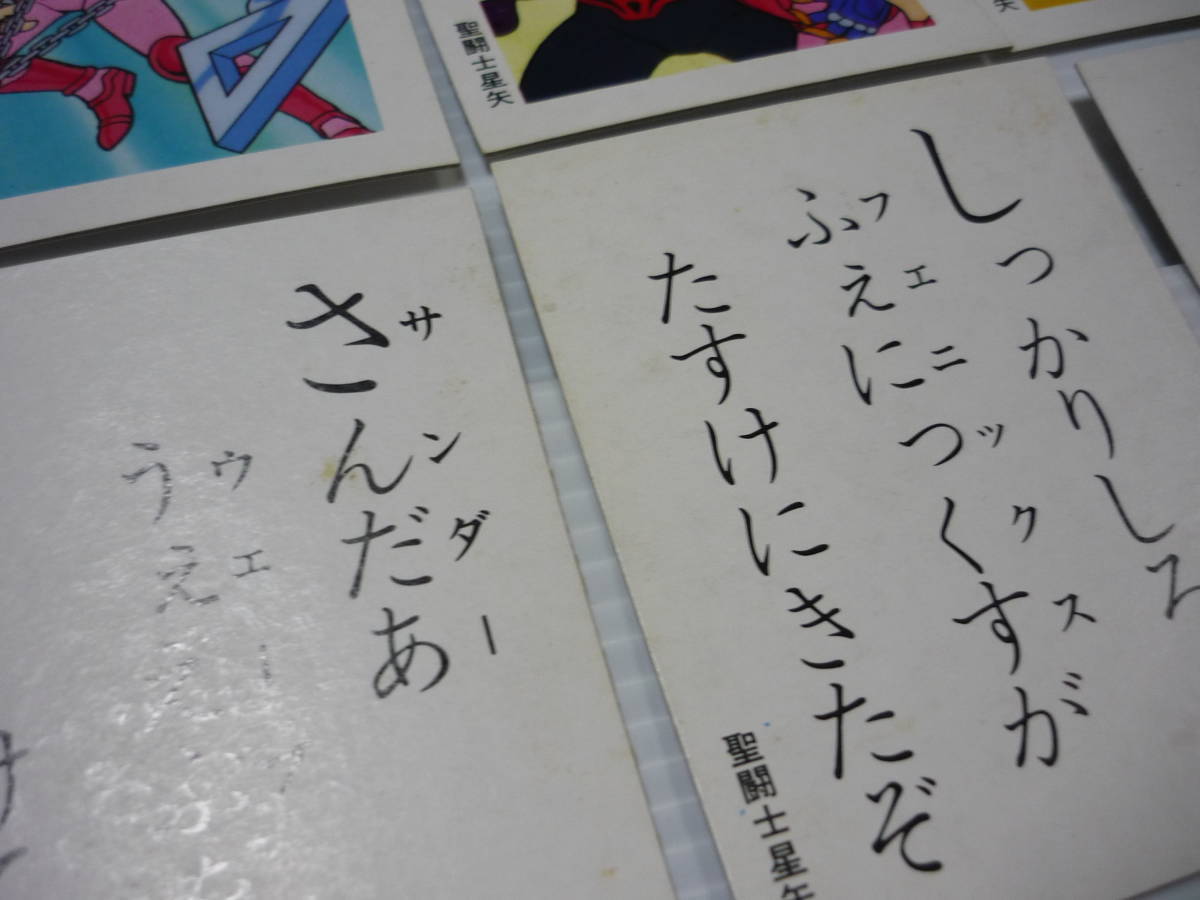 聖闘士星矢
しっかりしろ
ふぇにっくすが
フェニックス
たすけにきたぞ
聖闘士星矢
さんだあ
サンダー
うぇ
ウェー